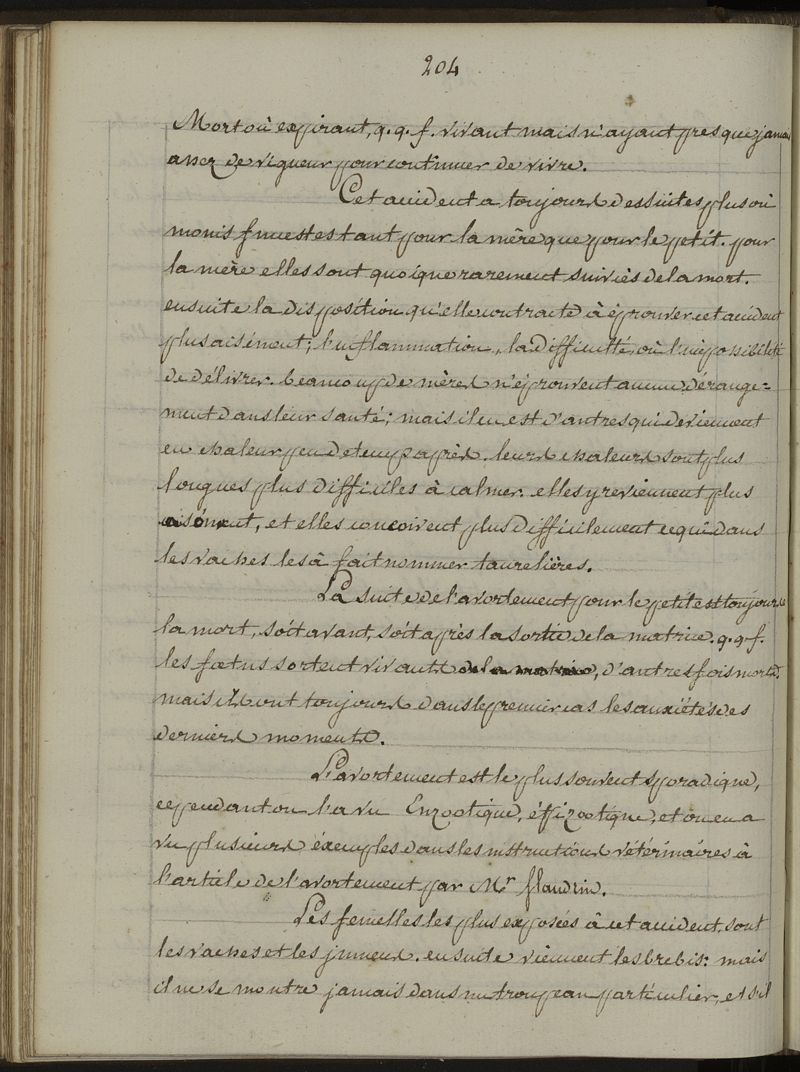 204
Mort où expirant, q.q.f. vivant mais n'ayant presque jamais
assez de vigueur pour continuer de vivre.
Cet accident a toujours des suites plus où
moins funestes tant pour la mère que pour le petit. pour
la mère elles sont quoique rarement suiviés de la mort.
ensuite la disposition qu'elle contracte à éprouver cet accident
plus aisément; l'inflammation, la difficulté, où l'impossibilité
de délivrer. beaucoup de mères n'éprouvent aucun dérange=
ment dans leur santé; mais il en est d'autres qui deviennent
en chaleur peu de temps après. leurs chaleurs sont plus
longues plus difficiles à calmer. elles y reviennent plus
aisément, et elles concoivent plus difficilement ce qui dans
les vaches les à fait nommer taurelières.
La suite de l'avortement pour le petit est toujours
la mort, soit avant, soit après la sortie de la matrice. q.q.f.
les fœtus sortent vivants de la matrice, d'autres fois morts.
mais ils ont toujours dans le premier cas les anxiétés des
derniers moments.
L'avortement est le plus souvent sporadique,
cependant on l'a vu Enzootique, épizootique, et on en a
vu plusieurs éxemples dans les instructions vétérinaires à
l'article de l'avortement par Mr flandrin.
Les femelles les plus exposées à cet accident sont
les vaches et les jumens. ensuite viennent les brebis: mais
il ne se montre jamais dans un troupeau particulier, et s'il